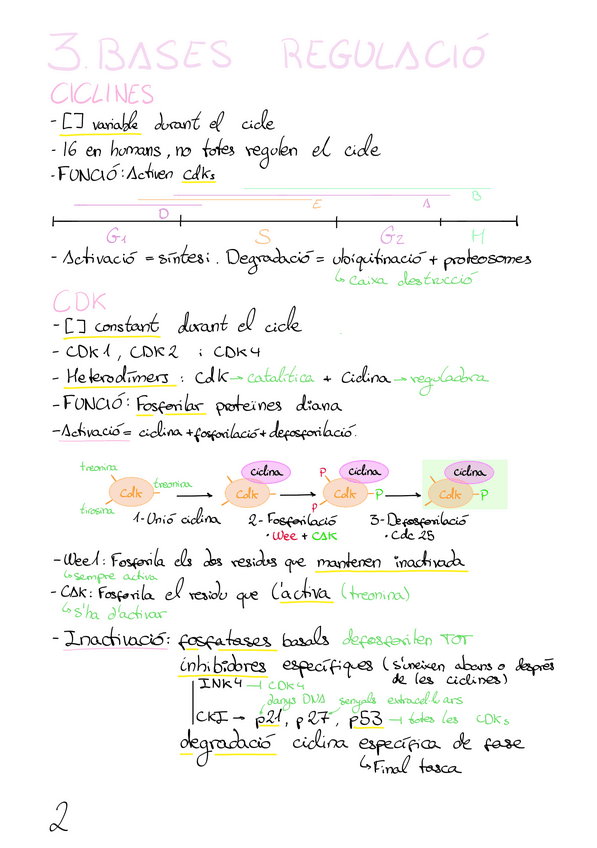 3. BASES REGULACIÓ
CICLINES
- [ ] variable durant el cicle
- 16 en humans, no totes regulen el cicle
- FUNCIÓ: Activen cdks
B
D E A
G1 S G2 M
- Activació = síntesi. Degradació = ubiquitinació + proteosomes
↳ Caixa destrucció
CDK
- [ ] constant durant el cicle
- CDK1, CDK2 i CDK4
- Heterodímers: Cdk → catalítica + Ciclina → reguladora
- FUNCIÓ: Fosforilar proteïnes diana
- Activació = ciclina + fosforilació + defosforilació.
treonina ciclina P ciclina ciclina
Cdk treonina Cdk Cdk - P Cdk - P
tirosina P
1- Unió ciclina 2- Fosforilació 3- Defosforilació
· Wee + CAK · Cdc 25
- Wee1: Fosforila els dos residus que mantenen inactivada
↳ sempre activa
- CAK: Fosforila el residu que l'activa (treonina)
↳ s'ha d'activar
- Inactivació: fosfatases basals defosforilen TOT
inhibidores específiques (s'uneixen abans o després
de les ciclines)
INK4 → CDK4
danys DNA senyals extracel·lars
CKI → p21, p27, p53 → totes les CDKs
degradació ciclina específica de fase
↳ Final tasca
2